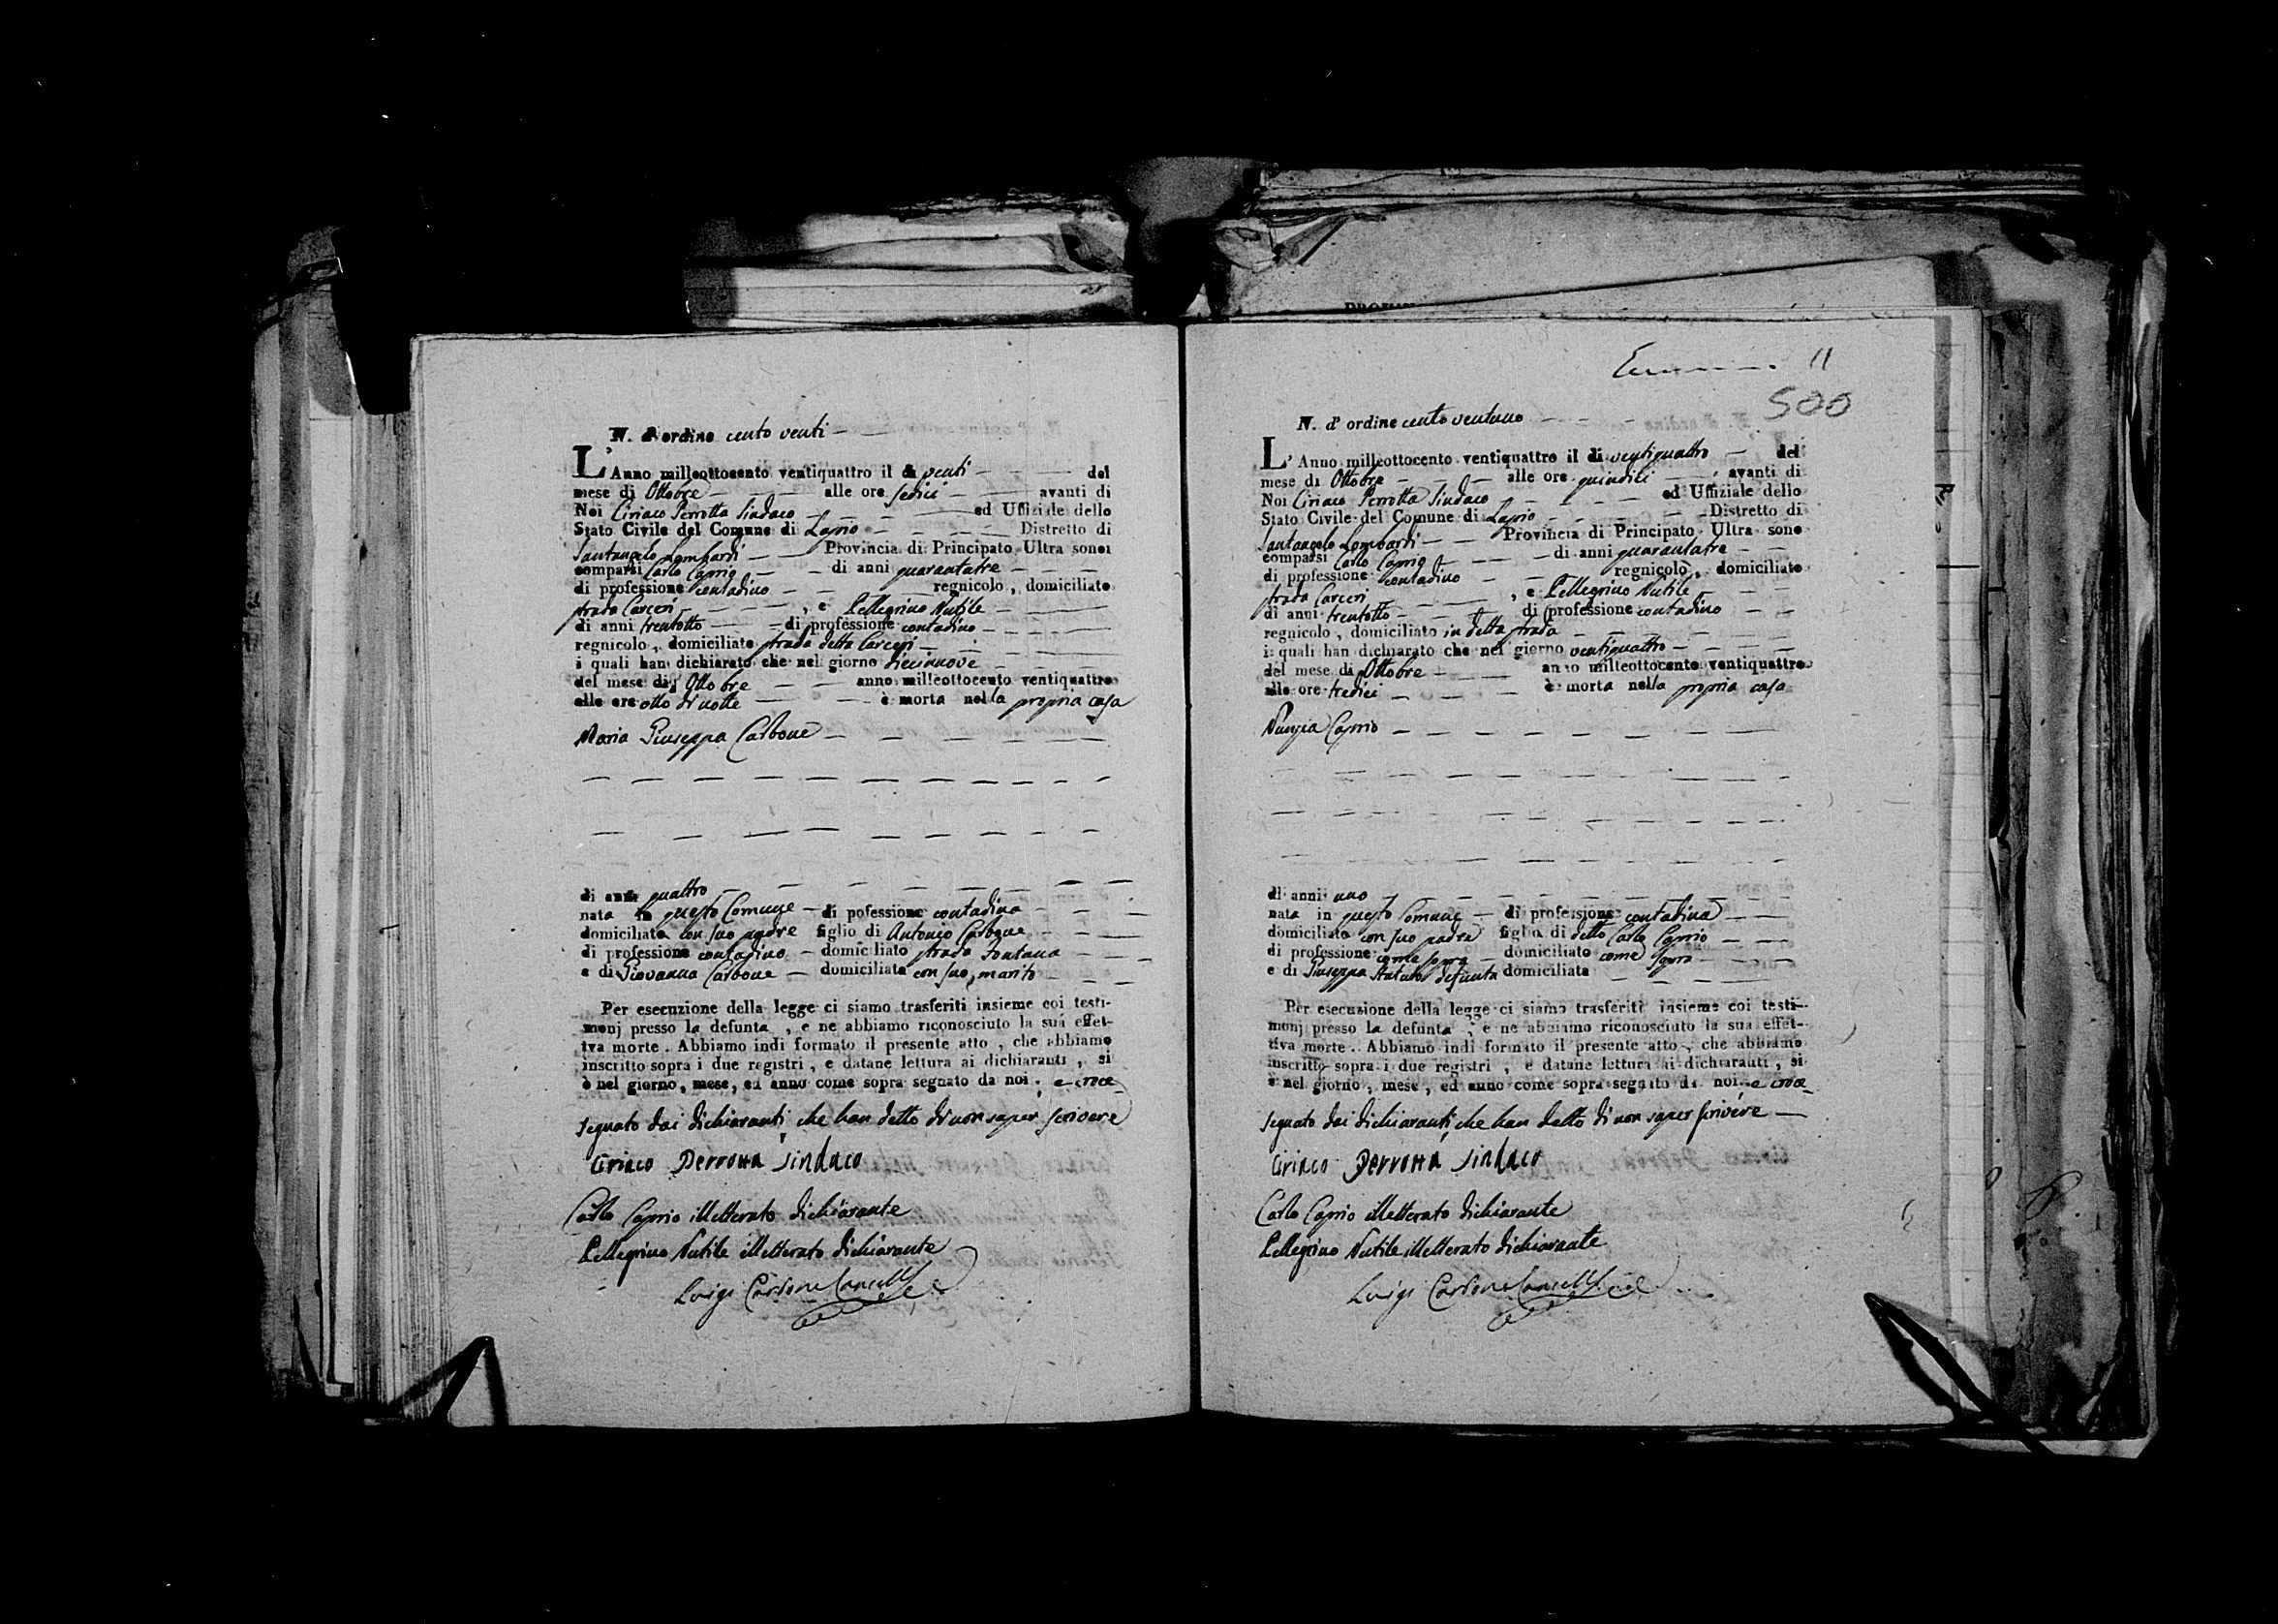 N. d'ordine cento venti
L'Anno milleottocento ventiquattro il di venti del
mese di Ottobre alle ore sedici avanti di
Noi Ciriaco Perrotta Sindaco ed Uffiziale dello
Stato Civile del Comune di Lapio Distretto di
Santangelo Lombardi Provincia di Principato Ultra sono
comparsi Carlo Caprio di anni quarantatre
di professione contadino regnicolo, domiciliato
strada Carceri, e Pellegrino Nutile
di anni trentotto di professione contadino
regnicolo, domiciliato strada detta Carceri
i quali han dichiarato che nel giorno diecinnove
del mese di Ottobre anno milleottocento ventiquattro
alle ore otto di notte è morta nella propria casa
Maria Giuseppa Carbone
di anni quattro
nata in questo Comune di pofessione contadina
domiciliata con suo padre figlio di Antonio Carbone
di professione contadino domiciliato strada Fontana
e di Giovanna Carbone domiciliata con suo marito
Per esecuzione della legge ci siamo trasferiti insieme coi testi-
monj presso la defunta, e ne abbiamo riconosciuto la sua effet-
tva morte. Abbiamo indi formato il presente atto, che abbiamo
inscritto sopra i due registri, e datane lettura ai dichiaranti, si
è nel giorno, mese, ed anno come sopra segnato da noi, e croce
segnato dai dichiaranti che han detto di non saper scrivere
Ciriaco Perrotta Sindaco
Carlo Caprio illetterato dichiarante
Pellegrino Nutile illetterato dichiarante
Luigi Carbone Cancell.
11
500
N. d'ordine cento ventuno
L'Anno milleottocento ventiquattro il di ventiquattro del
mese di Ottobre alle ore quindici avanti di
Noi Ciriaco Perrotta Sindaco ed Uffiziale dello
Stato Civile del Comune di Lapio Distretto di
Santangelo Lombardi Provincia di Principato Ultra sono
comparsi Carlo Caprio di anni quarantatre
di professione contadino regnicolo, domiciliato
strada Carceri, e Pellegrino Nutile
di anni trentotto di professione contadino
regnicolo, domiciliato in detta strada
i quali han dichiarato che nel giorno ventiquattro
del mese di Ottobre anno milleottocento ventiquattro
alle ore tredici è morta nella propria casa
Nunzia Caprio
di anni uno
nata in questo Comune di professione contadina
domiciliata con suo padre figlia di detto Carlo Caprio
di professione come sopra domiciliato come sopra
e di Giuseppa defunta domiciliata
Per esecuzione della legge ci siamo trasferiti insieme coi testi-
monj presso la defunta, e ne abbiamo riconosciuto la sua effet-
tiva morte. Abbiamo indi formato il presente atto, che abbiamo
inscritto sopra i due registri, e datane lettura ai dichiaranti, si
è nel giorno, mese, ed anno come sopra segnato da noi, e croce
segnato dai dichiaranti che han detto di non saper scrivere
Ciriaco Perrotta Sindaco
Carlo Caprio illetterato dichiarante
Pellegrino Nutile illetterato dichiarante
Luigi Carbone Cancell.